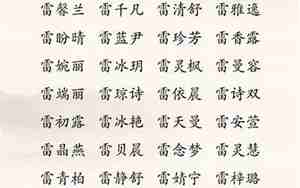 雷馨兰 雷千凡 雷清舒 雷雅逸
雷盼晴 雷蓝尹 雷珍芳 雷香露
雷婉丽 雷冰玥 雷灵枫 雷曼容
雷端丽 雷琼诗 雷依晨 雷诗双
雷初露 雷冰艳 雷天曼 雷安萱
雷晶燕 雷贝晨 雷念梦 雷灵慧
雷青柏 雷静舒 雷婧宁 雷梓璐